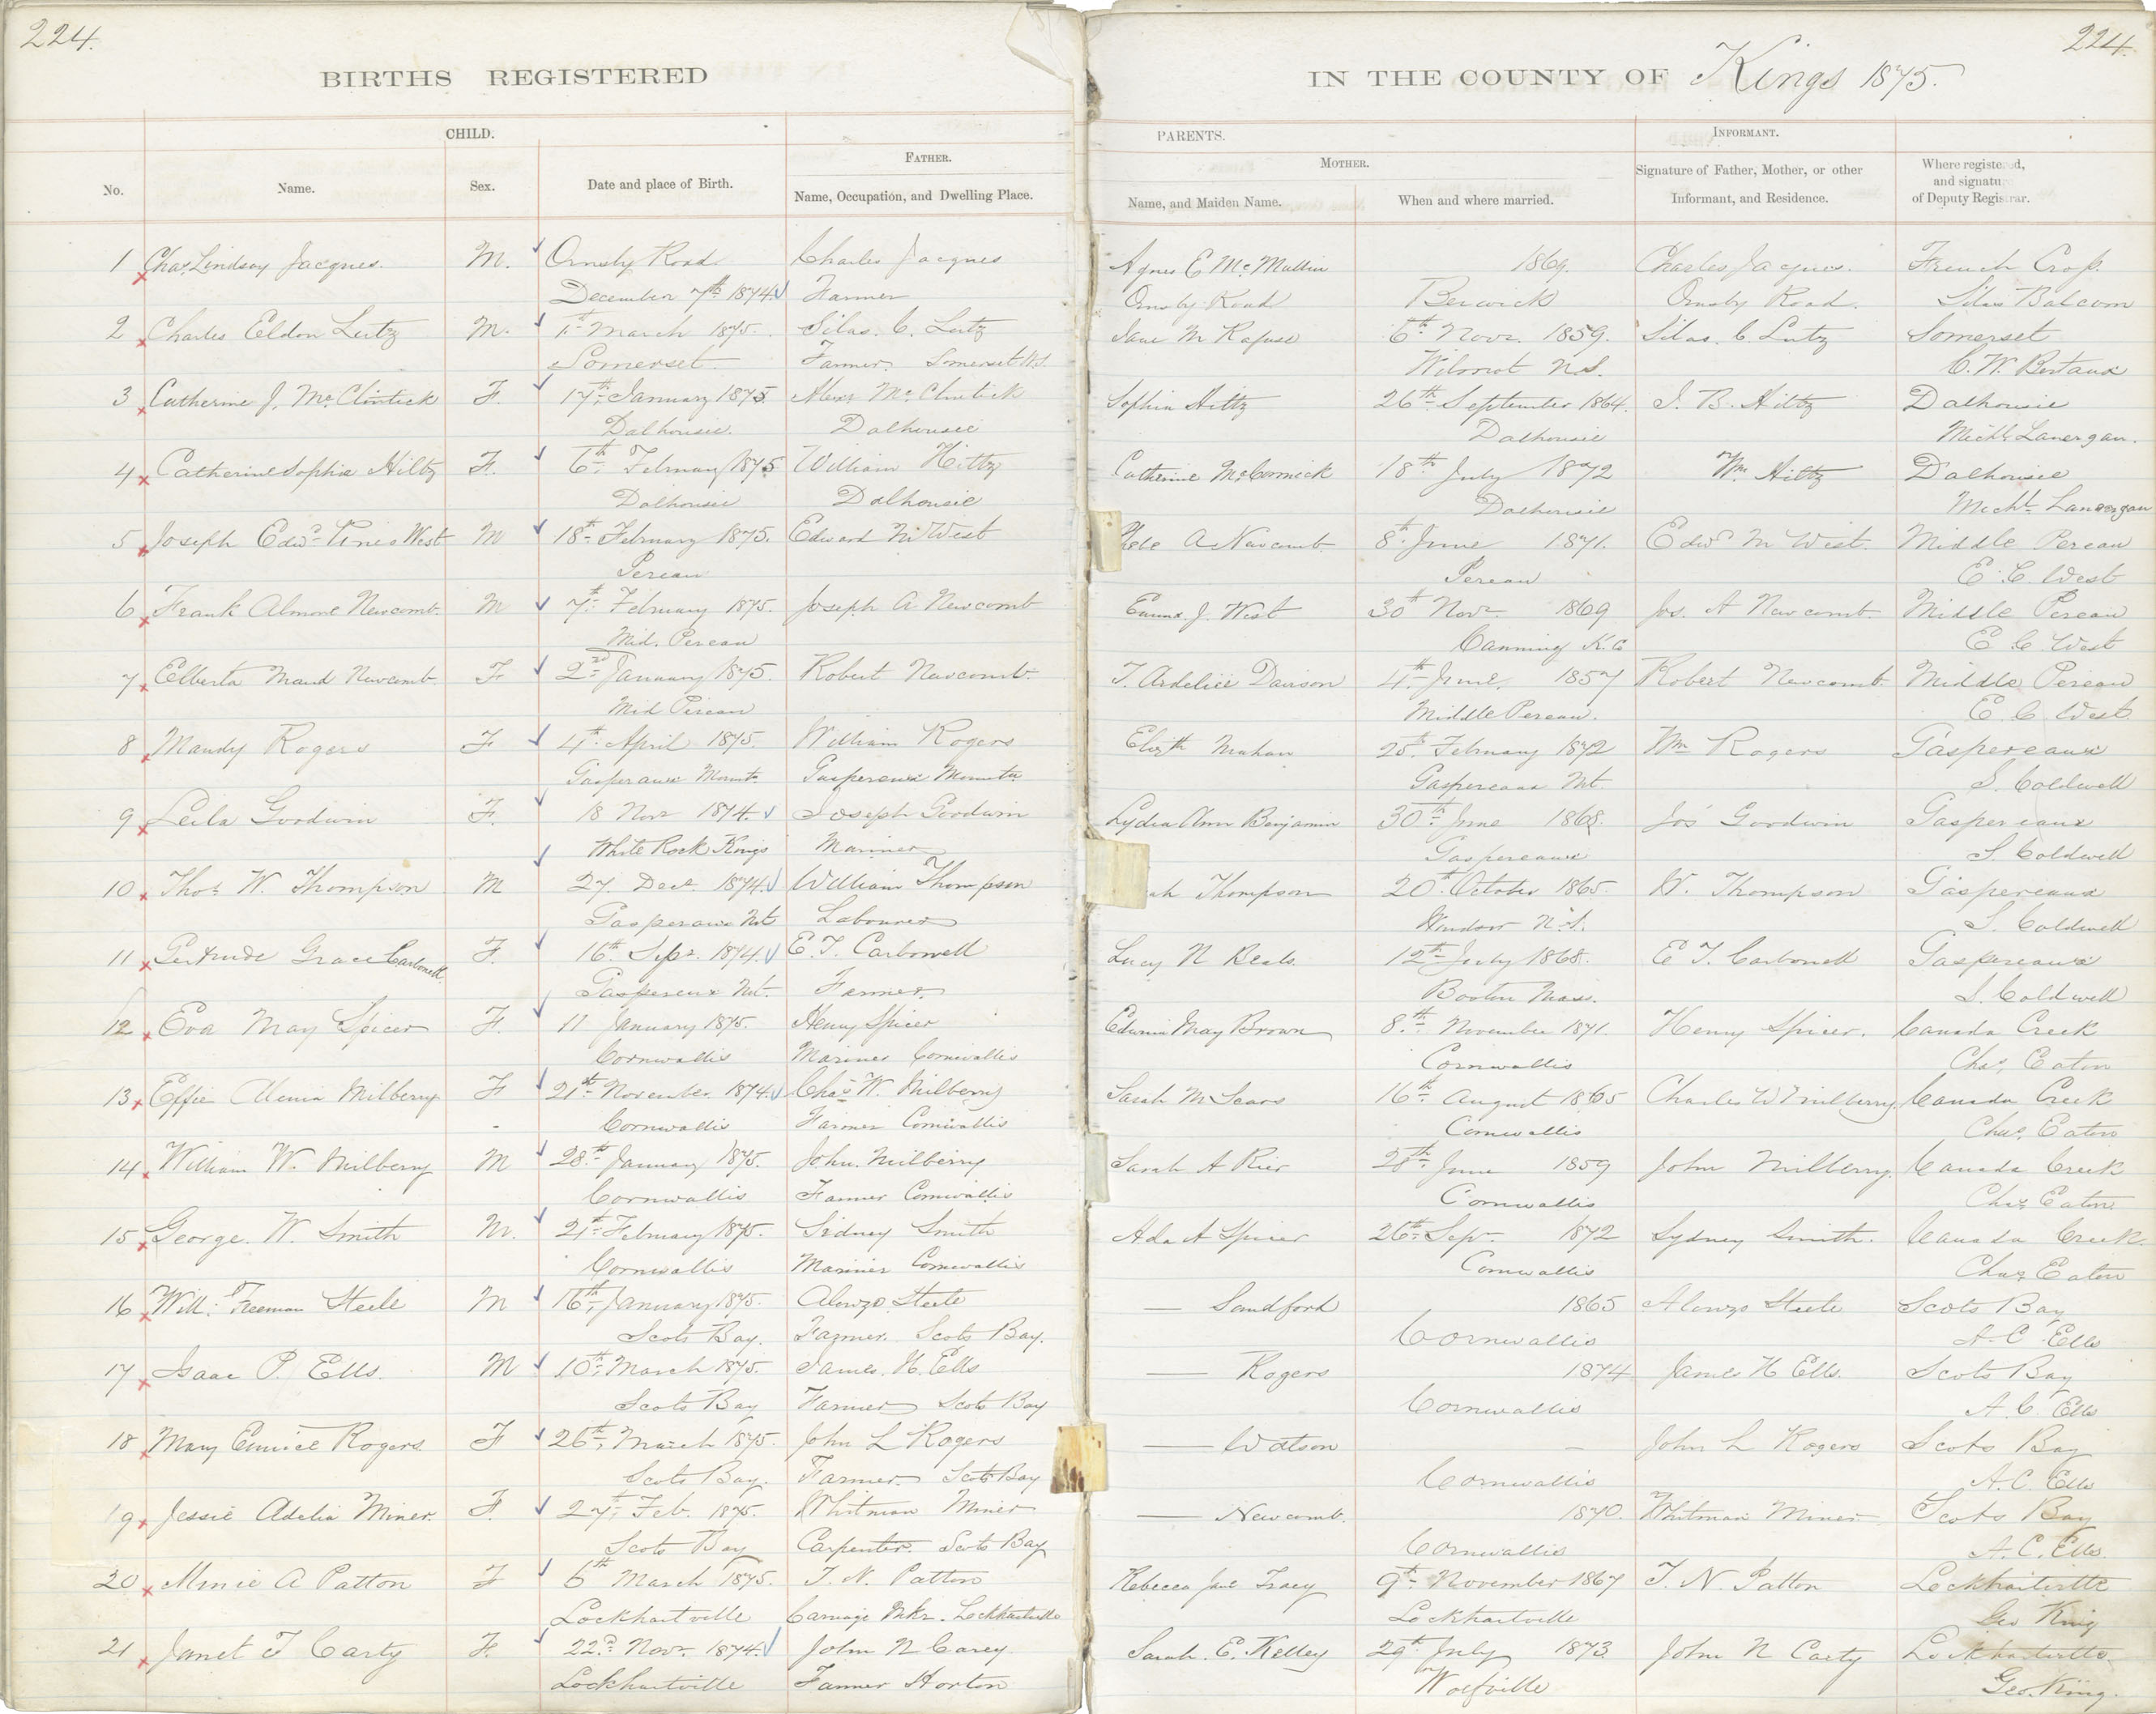 224.
224.
BIRTHS REGISTERED
IN THE COUNTY OF Kings 1875.
CHILD.
PARENTS.
INFORMANT.
FATHER.
MOTHER.
No.
Name.
Sex.
Date and place of Birth.
Name, Occupation, and Dwelling Place.
Name, and Maiden Name.
When and where married.
Signature of Father, Mother, or other
Informant, and Residence.
Where registered,
and signatu
of Deputy Registrar.
1 Chas. Lindsay Jacques. M. Ormsby Road Charles Jacques Agnes E McMullin 1869. Charles Jacques. French Cross.
December 7th 1874. Farmer Ormsby Road Berwick Ormsby Road. Silas Balcom
2 Charles Eldon Lutz M. 1st March 1875. Silas. C. Lutz Jane M Rafuse 6th Novr. 1859. Silas. C. Lutz Somerset
Somerset Farmer. Somerset N.S. Wilmot N.S. C. W. Bertaux
3 Catherine J. McClintick F. 17th January 1875 Alexr McClintick Sophia Hiltz 26th September 1864. J. B. Hiltz Dalhousie
Dalhousie. Dalhousie Dalhousie Michl. Lanergan.
4 Catherine Sophia Hiltz F. 6th February 1875 William Hiltz Catherine McCormick 18th July 1872 Wm Hiltz Dalhousie
Dalhousie Dalhousie Dalhousie Michl. Lanergan
5 Joseph Edwd West M 18th February 1875. Edward M West A Newcomb 8th June 1871. Edwd M West. Middle Pereau
Pereau Pereau E. C. West
6 Frank Almone Newcomb. M 7th February 1875. Joseph A Newcomb Emma. J. West 30th Novr 1869 Jos. A Newcomb. Middle Pereau
Mid. Pereau Canning K.C E. C. West
7 Elberta Maud Newcomb. F 2nd January 1875. Robert Newcomb. T. Ardelice Davison 4th June. 1857 Robert Newcomb. Middle Pereau
Mid Pereau Middle Pereau. E. C. West.
8 Mandy Rogers F 4th April 1875. William Rogers Elizth 25th February 1872 Wm Rogers Gaspereaux
Gasperaux Mount. Gaspereaux Mountn Gaspereaux Mt. S. Coldwell
9 Leila Goodwin F. 18 Novr 1874. Joseph Goodwin Lydia Ann Benjamin 30th June 1868. Jos Goodwin Gaspereaux
White Rock Kings Mariner Gaspereaux S. Coldwell
10 Thos. W. Thompson M 27. Decr. 1874. William Thompson ah Thompson 20th October 1865. W. Thompson Gaspereaux
Gasperaux Mt Labourer Windsor N.S. S. Coldwell
11 Gertrude Grace Carbonell. F. 16th Sepr. 1874. E. T. Carbonell Lucy N Beals. 12th July 1868. E T. Carbonell Gaspereaux
Gaspereux Mt. Farmer. Boston Mass. S. Coldwell
12 Eva May Spicer F. 11 January 1875. Henry Spicer Edwina May Brown 8th November 1871. Henry Spicer. Canada Creek
Cornwallis Mariner Cornwallis Cornwallis Chas. Eaton
13 Effie Milberry F 21st November 1874. Chas W. Milberry Sarah M Sears 16th August 1865 Charles W Milberry Canada Creek
Cornwallis Farmer Cornwallis Cornwallis Chas. Eaton
14 William W. Milberry M 28th January 1875. John. Milberry Sarah A Rier 28th June 1859 John Milberry. Canada Creek
Cornwallis Farmer Cornwallis Cornwallis Chas Eaton
15 George. W. Smith M. 21st February 1875. Sidney Smith Ada A Spicer 26th Sepr. 1872 Sydney Smith. Canada Creek.
Cornwallis Mariner Cornwallis Cornwallis Chas Eaton
16 Will: Freeman Steele M 16th January 1875. Alonzo. Steele — Sandford 1865 Alonzo Steele Scots Bay
Scots Bay. Farmer. Scots Bay. Cornwallis A. C. Ells
17 Isaac P. Ells. M 10th March 1875. James. H. Ells — Rogers 1874. James H Ells. Scots Bay
Scots Bay Farmer Scots Bay Cornwallis A. C. Ells
18 Mary Eunice Rogers F 26th March 1875. John L Rogers — Watson — John L Rogers Scots Bay
Scots Bay. Farmer Scots Bay Cornwallis A. C. Ells
19 Jessie Adelia Miner. F. 27th Feb. 1875. Whitman Miner — Newcomb. 1870. Whitman Miner. Scots Bay
Scots Bay Carpenter. Scots Bay Cornwallis A. C. Ells.
20 Minie A Patton F 6th March 1875. T. N. Patton Rebecca Jane Tracy 9th November 1867 T. N. Patton Lockhartville
Lockhartville Carriage Mkr. Lockhartville Lockhartville Geo King
21 Janet T Carty F. 22nd Novr. 1874. John N Carey Sarah. E. Kelley 29th July 1873. John N Carty Lockhartville.
Lockhartville Farmer Horton Wolfville Geo. King.